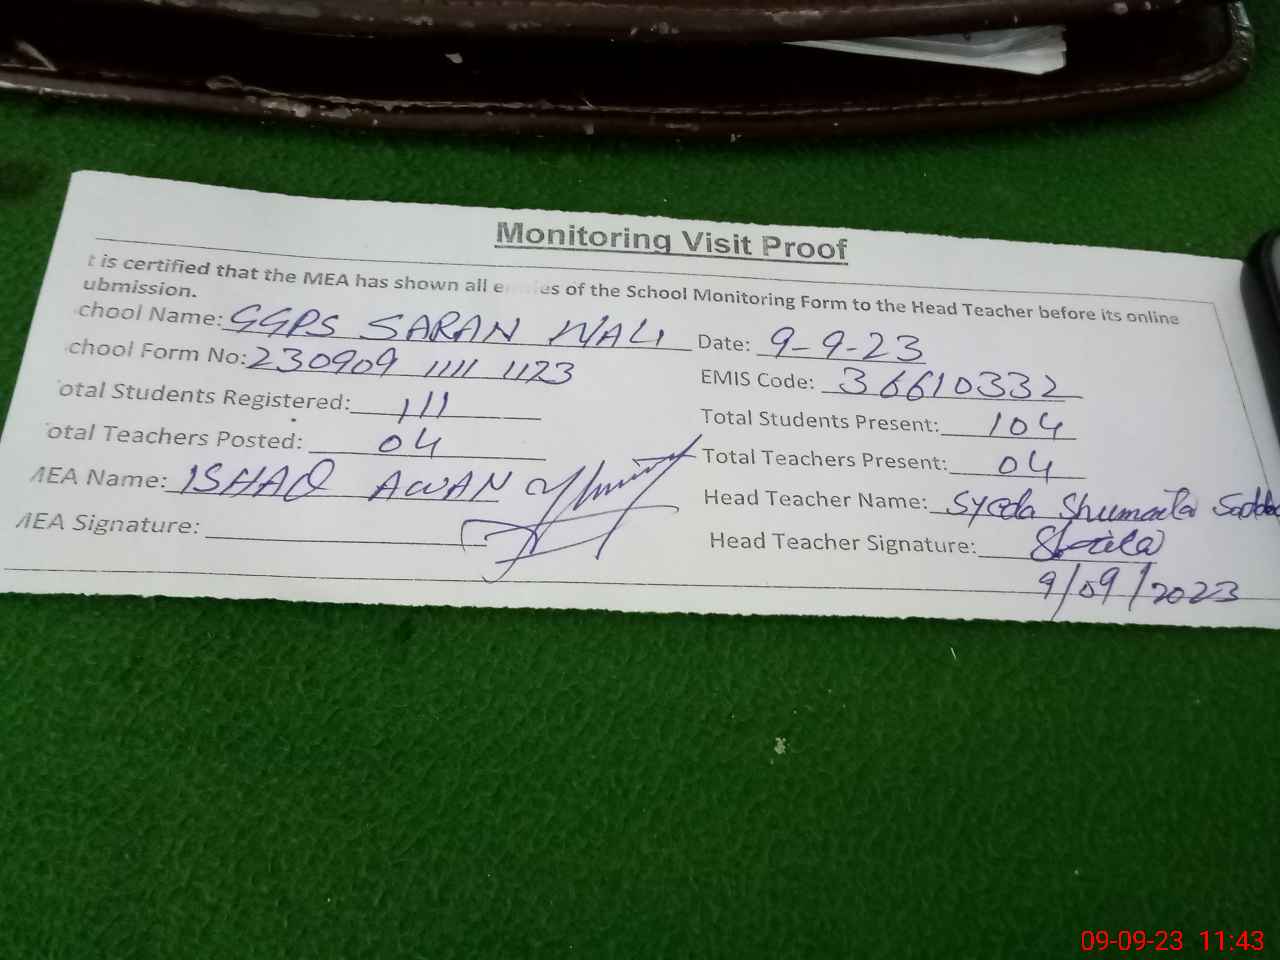 Monitoring Visit Proof
t is certified that the MEA has shown all e ies of the School Monitoring Form to the Head Teacher before its online
ubmission.
chool Name: GGPS SARAN WALI Date: 9-9-23
chool Form No: 230909 1111 1123 EMIS Code: 36610332
otal Students Registered: 111 Total Students Present: 104
otal Teachers Posted: 04 Total Teachers Present: 04
MEA Name: ISHAQ AWAN Head Teacher Name: Syeda Shumaila
MEA Signature: Head Teacher Signature:
9/09/2023
09-09-23 11:43